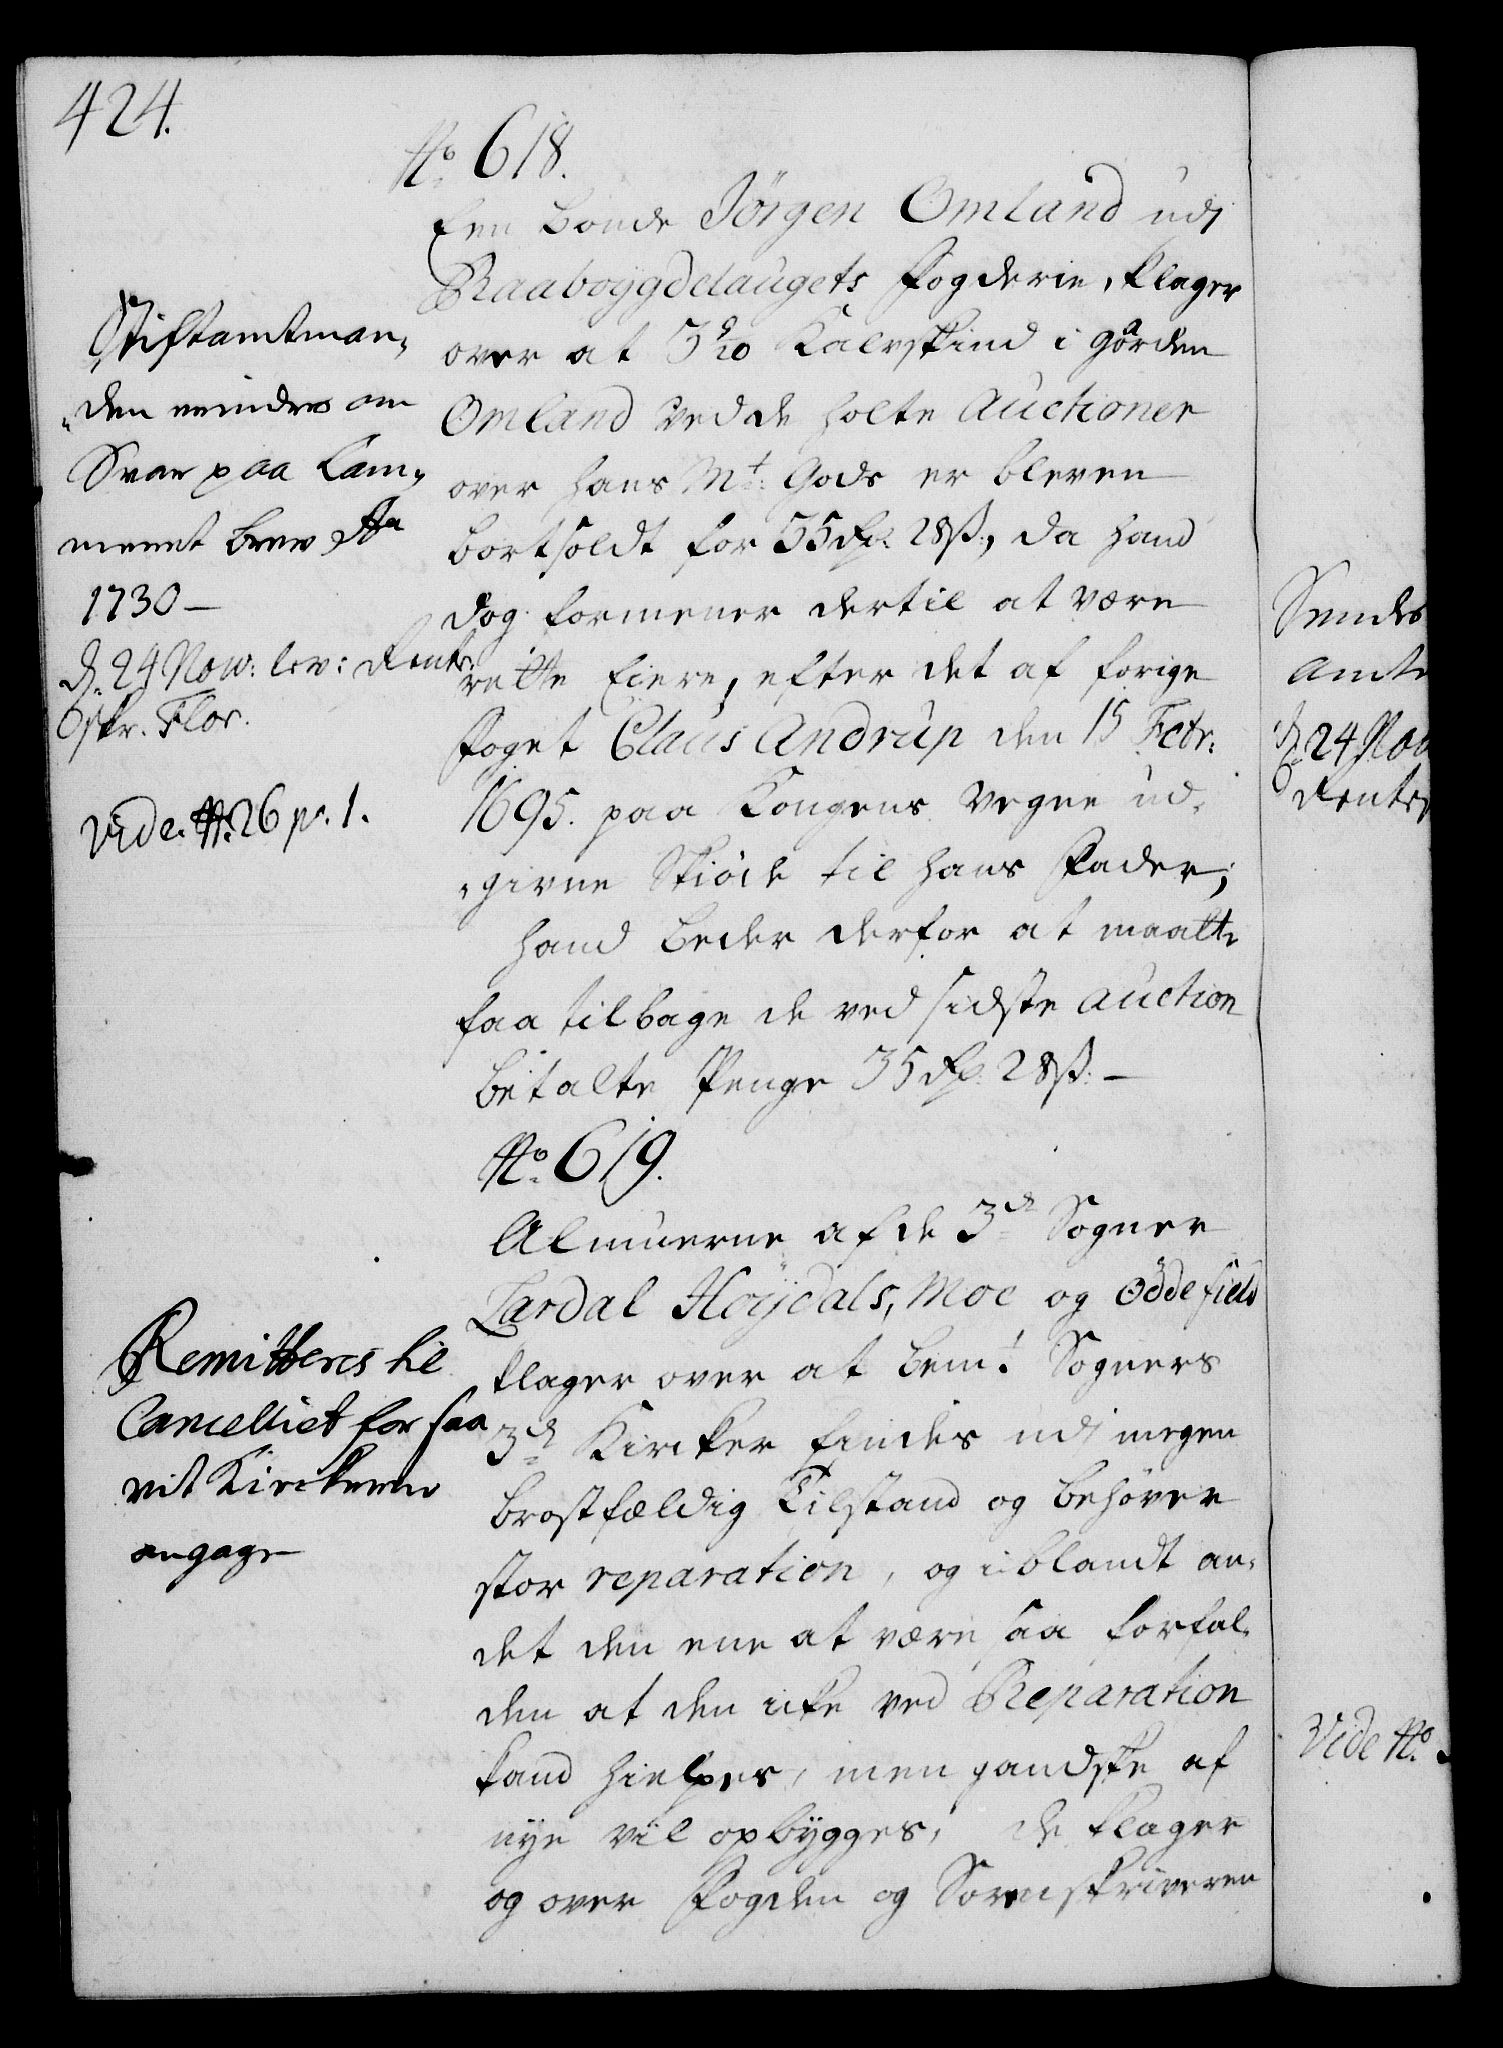 424.
No 618.
Een bonde Jörgen Omland udj
Raabøygdelaugets Fogderie, klager
over at 3 9/10 Kalvskind i Gaarden
Omland ved de holte Auctioner
over Hans Mt: Gods er bleven
bortsoldt for 35 Rd. 28 ß., da hand
dog formener dertil at være
rette Eiere, efter det af forige
Foget Claus Andrup den 15 Febr:
1695. paa Kongens Vegne ud-
givne Skiöde til hans Fader;
hand beder derfor at maatte
faa tilbage de ved sidste Auction
betalte Penge 35 Rd. 28 ß. –
Stiftamtman-
den mindes om
Svar paa Cam-
merets brev Ao
1730 –
d. 24 Nov: lev: Rentr:
skr. Flor.
Vide. No. 26 p. 1.
No. 619.
Almuerne af de 3de Sogner
Lardal Høydals, Moe og Øddefield
klager over at bemte Sogners
3de Kircker findes udj megen
brøstfældig Tilstand og behøver
stor reparation, og iblandt an-
det den ene at være saa forfal-
den at den icke ved Reparation
kand hielpes, men gandske af
nye vil opbygges, de klager
og over Fogden og Sorenskriveren
Remitteres til
Cancelliet for saa
vit Kirckerne
angaar
Sendes
Amt
d. 24 Nov
Rentes
Vide No.